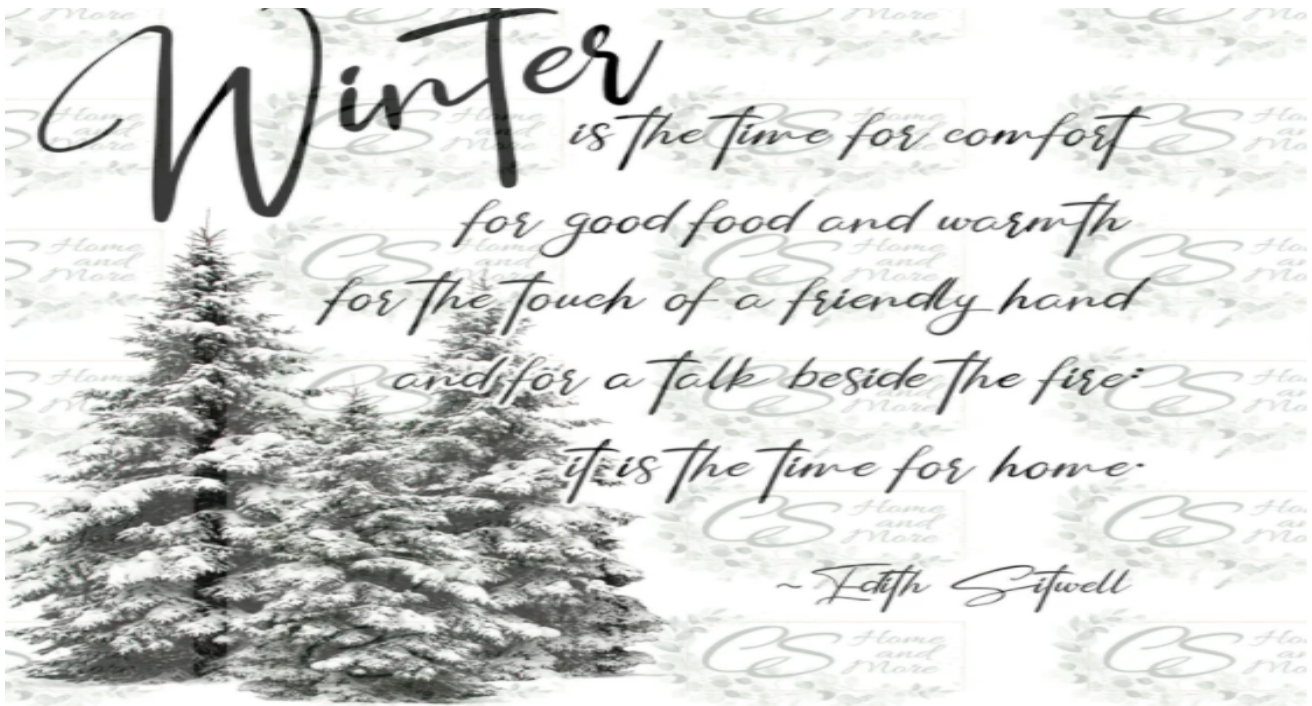 Winter
is the time for comfort
for good food and warmth
for the touch of a friendly hand
and for a talk beside the fire:
it is the time for home.
~ Edith Sitwell
CS Home and More